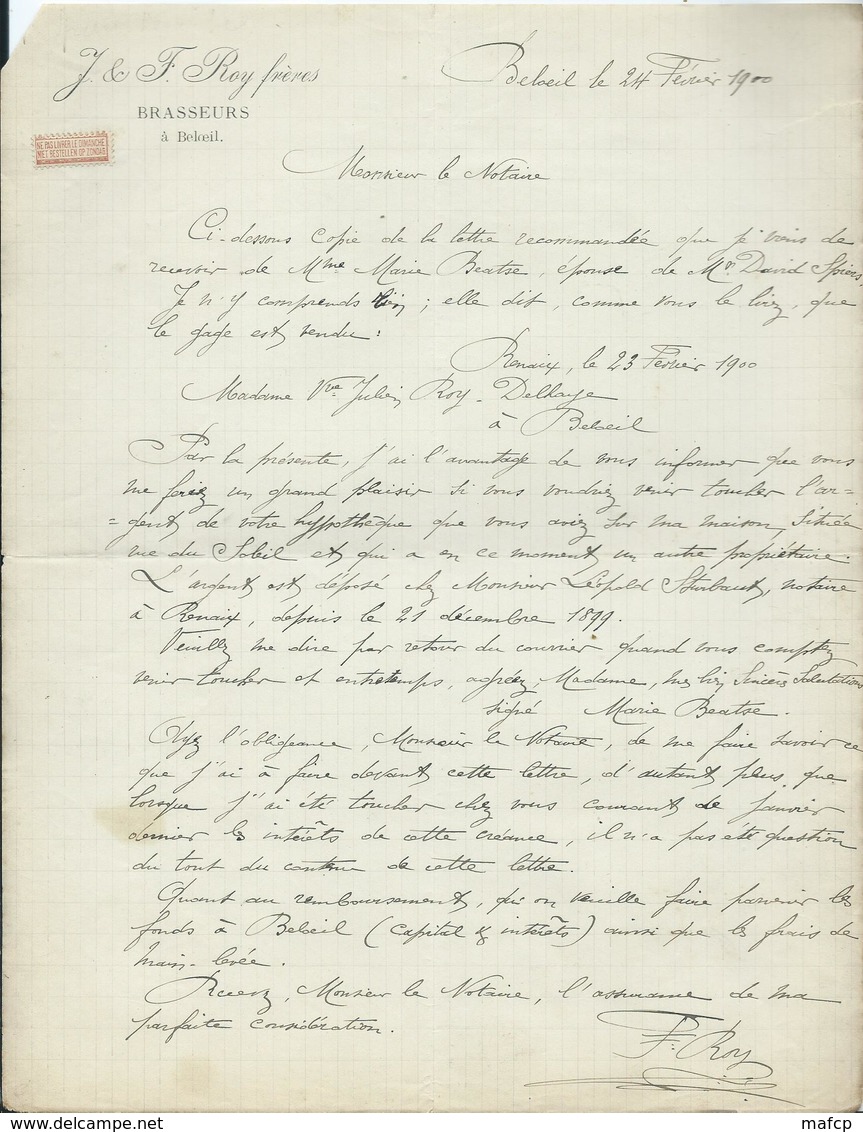 J. & F. Roy frères
BRASSEURS
à Belœil.
NE PAS LIVRER LE DIMANCHE
NIET BESTELLEN OP ZONDAG
Belœil le 24 Février 1900
Monsieur le Notaire
Ci-dessous copie de la lettre recommandée que je viens de
recevoir de Mme Marie Beatse, épouse de Mr David Spiers,
Je n'y comprends rien ; elle dit, comme vous le lirez, que
le gage est vendu :
Renaix, le 23 Février 1900
Madame Vve Julien Roy-Delhaye
à Belœil
Par la présente, j'ai l'avantage de vous informer que vous
me feriez un grand plaisir si vous voudriez venir toucher l'ar=
=gent de votre hyppothèque que vous aviez sur ma maison, située
rue du Soleil et qui a en ce moment un autre propriétaire.
L'argent est déposé chez Monsieur Léopold Sturbaut, notaire
à Renaix, depuis le 21 décembre 1899.
Veuillez me dire par retour du courrier quand vous comptez
venir toucher et entretemps, agréez, Madame, mes bien sincères salutations
signé Marie Beatse.
Ayez l'obligeance, Monsieur le Notaire, de me faire savoir ce
que j'ai à faire devant cette lettre, d'autant plus que
lorsque j'ai été toucher chez vous courant de janvier
dernier les intérêts de cette créance, il n'a pas été question
du tout du contenu de cette lettre.
Quant au remboursement, qu'on veuille faire parvenir les
fonds à Belœil (capital & intérêts) ainsi que les frais de
main-levée.
Recevez, Monsieur le Notaire, l'assurance de ma
parfaite considération.
F. Roy
mafcp